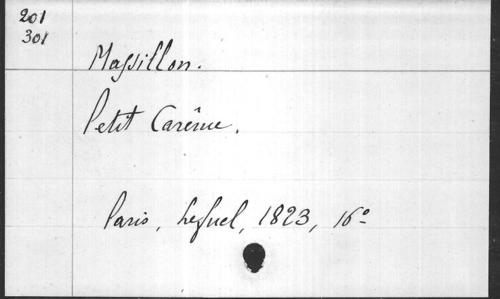 201
301
Massillon.
Petit Carême.
Paris, Lefuel, 1823, 16°